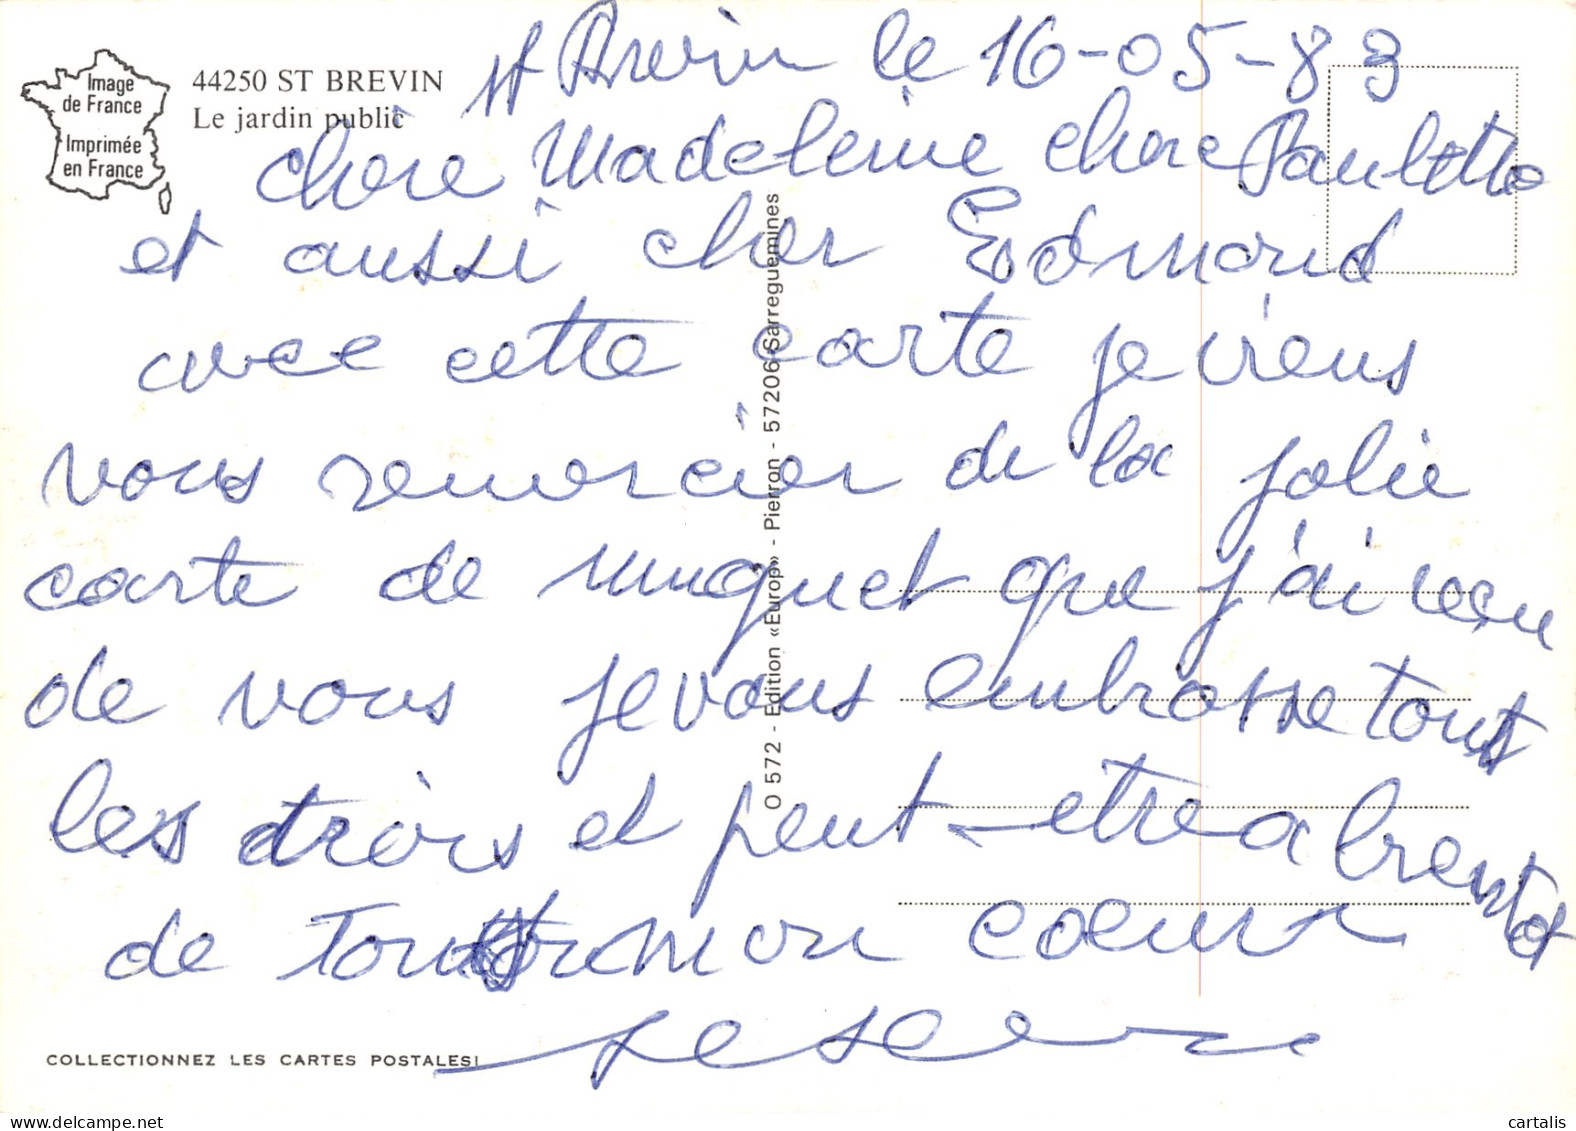 Image
de France
Imprimée
en France
44250 ST BREVIN
Le jardin public
st Brevin le 16-05-83
chère Madeleine chere Paulette
et aussi cher Edmond
avec cette carte je viens
vous remercier de la jolie
carte de muguet que j'ai recu
de vous je vous embrasse tous
les trois et peut-etre a bientot
de tout mon coeur
O 572 - Edition «Europ» - Pierron - 57206 Sarreguemines
COLLECTIONNEZ LES CARTES POSTALES!
cartalis
www.delcampe.net